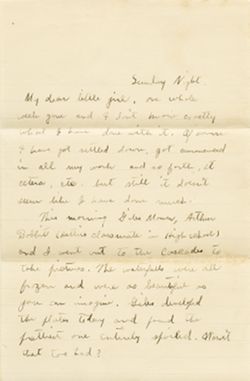 Sunday Night.
My dear little girl, one whole
week gone and I don't know exactly
what I have done with it. Of course
I have got settled down, got commenced
in all my work and so forth, et
cetera, etc. but still it doesn't
seem like I have done much.
This morning Giles Moore, Arthur
classmate in High school)
and I went out to the Cascades to
take pictures. The waterfalls were all
frozen and were as beautiful as
you can imagine. Giles developed
the plates today and found the
prettiest one entirely spoiled. Wasn't
that too bad?